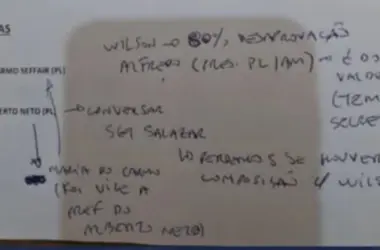 AS
WILSON → 80% DESAPROVAÇÃO
ALFREDO (PRES. PL/AM) → É O
RMO SEFFAIR (PL)
VALD
ERTO NETO (PL) → CONVERSAR
(TEM
SGT SALAZAR
SECRE
MARIA DO CARMO
(FOI VICE A
COMPOSIÇÃO C/ WILS
PREF DO
ALBERTO NETO)